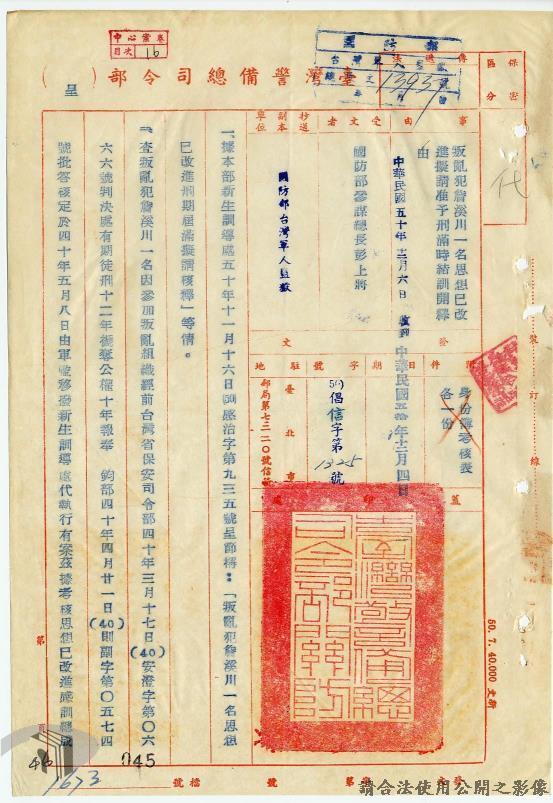 中心檔卷
目次 16
臺灣警備總司令部(呈)
保密
區分
事由
叛亂犯詹溪川一名思想已改
進擬請准予刑滿時結訓開釋
由
中華民國五十年十二月六日
受文者
國防部參謀總長彭上將
抄送
副本
單位
國防部台灣軍人監獄
發文
附件
身份簿考核表
各一份
日期
中華民國五十年十二月四日
字號
(50)倡信字第1325號
駐地
臺北市
郵局第七三二〇號信箱
蓋印
臺灣警備總司令部關防
一、據本部新生訓導處五十年十一月十六日
感治字第九三五號呈節稱:「叛亂犯詹溪川一名思想
已改進刑期屆滿擬請核釋」等情。
二、查叛亂犯詹溪川一名因參加叛亂組織經前台灣省保安司令部四十年三月十七日(40)安澄字第〇六
六六號判決處有期徒刑十二年褫奪公權十年報奉 鈞部四十年四月廿一日(40)則副字第〇五七四
號批答核定於四十年五月八日由軍監移發新生訓導處代執行有案茲據考核思想已改進感訓績成
裝訂線
50.7.40,000
第
頁
046
045
1673
檔號
第
號
請合法使用公開之影像